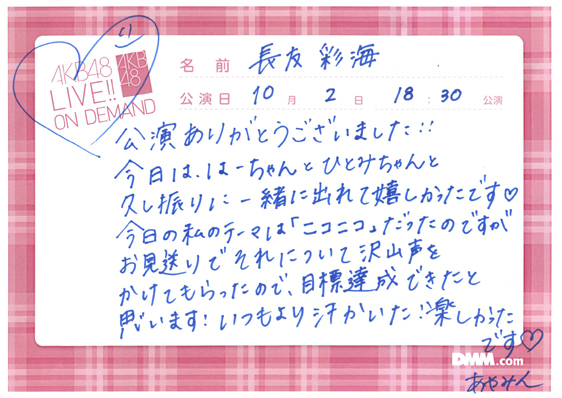 AKB48
LIVE!!
ON DEMAND
AKB
48
名前 長友彩海
公演日 10月2日 18:30公演
公演ありがとうございました!!
今日は、はーちゃんとひとみちゃんと
久し振りに一緒に出れて嬉しかったです♡
今日の私のテーマは「ニコニコ」だったのですが
お見送りでそれについて沢山声を
かけてもらったので、目標達成できたと
思います!いつもより汗かいた!楽しかった
です♡
DMM.com
あやみん